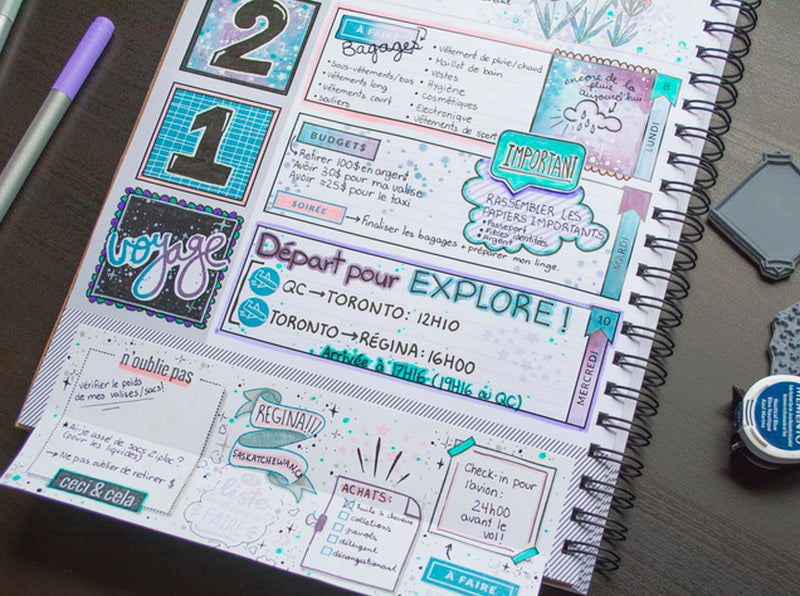 2
À FAIRE
Bagages
• sous-vêtements/bas
• vêtements long
• vêtements court
• souliers
• vêtement de pluie/chaud
• Maillot de bain
• Vestes
• Hygiène
• cosmétiques
• Électronique
• vêtements de sport
encore de la
pluie
aujourd'hui
8
LUNDI
1
BUDGETS
Retirer 100$ en argent
Avoir 30$ pour ma valise
Avoir ≥25$ pour le taxi
SOIRÉE
→Finaliser les bagages + préparer mon linge.
IMPORTANT
RASSEMBLER LES
PAPIERS IMPORTANTS
• Passeport
• Pièces identitées
• Argent
MARDI
voyage
Départ pour EXPLORE!
QC→TORONTO: 12H10
TORONTO→RÉGINA: 16H00
Arrivée à 17H16 (19H16 au QC)
10
MERCREDI
n'oublie pas
vérifier le poids
de mes valises/sacs!
★Ai-je assé de sacs Ziploc?
(pour les liquides)
→ Ne pas oublier de retirer $
ceci & cela
REGINA!!!
SASKATCHEWAN
liste
ACHATS:
huile à cheveux
collations
gravols
détergent
décongestionant
Check-in pour
l'avion:
24h00
avant le
vol!
À FAIRE
Nautical Blue